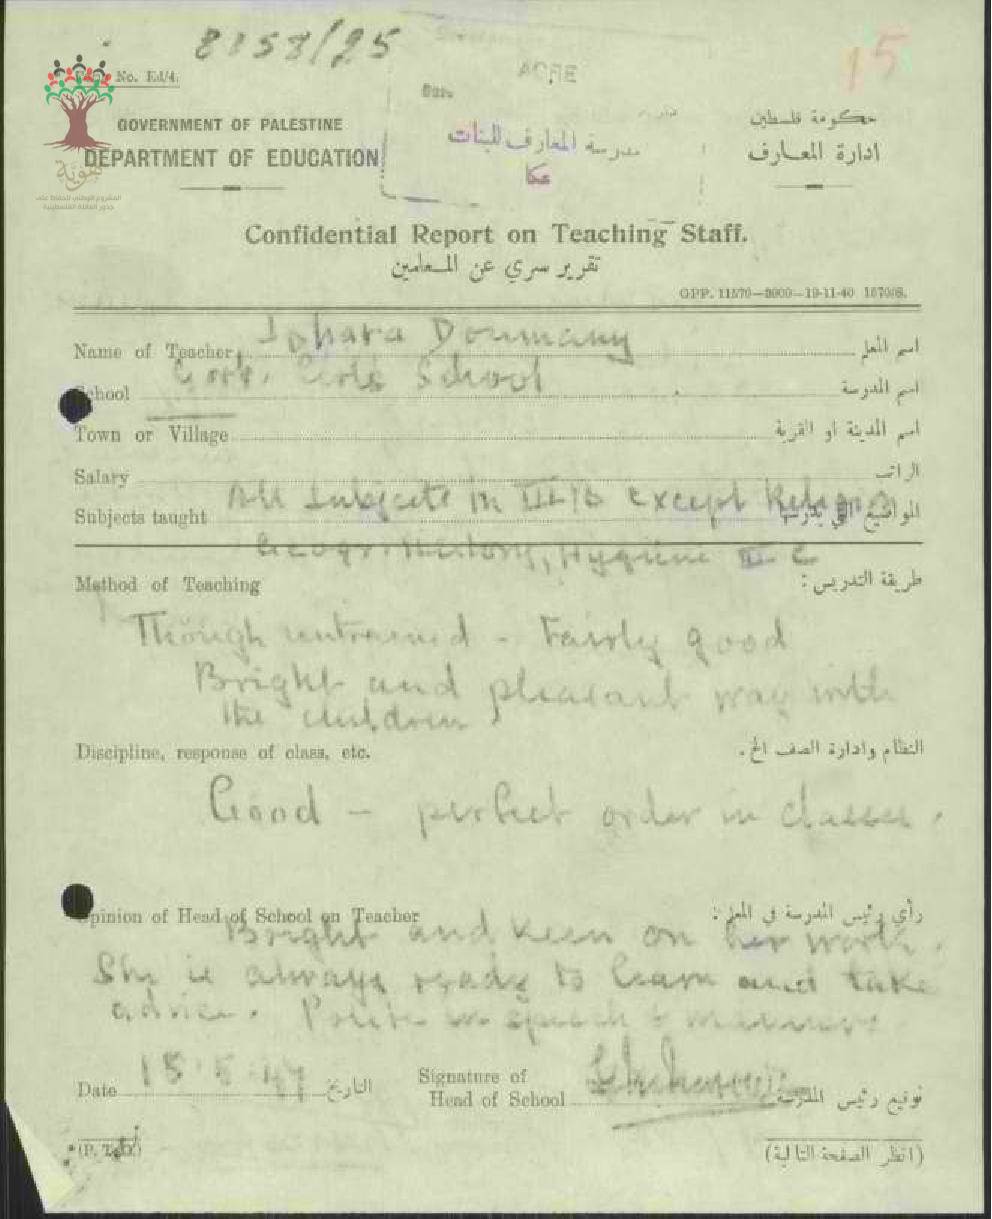 8158/25
15
No. Ed/4.
ACRE
GOVERNMENT OF PALESTINE
حكومة فلسطين
DEPARTMENT OF EDUCATION
ادارة المعارف
مدرسة المعارف للبنات
عكا
هوية
المشروع الوطني للحفاظ على
جذور العائلة الفلسطينية
Confidential Report on Teaching Staff.
تقرير سري عن المعلمين
GPP. 11570—3000—19-11-40 1570/S.
Name of Teacher Doumany اسم المعلم
School Govt. Girls School اسم المدرسة
Town or Village اسم المدينة او القرية
Salary الراتب
Subjects taught All Subjects in III/B except Religion المواضيع التي يدرسها
Geogr. History, Hygiene III C
Method of Teaching طريقة التدريس :
Though untrained - Fairly good
Bright and pleasant way with
the children
Discipline, response of class, etc. النظام وادارة الصف الخ.
Good - perfect order in classes.
Opinion of Head of School on Teacher رأي رئيس المدرسة في المعلم :
Bright and keen on her work.
She is always ready to learn and take
advice. Polite in speech & manners.
Date 15.5.47 التاريخ
Signature of
Head of School توقيع رئيس المدرسة
(P. T. O.) (انظر الصفحة التالية)